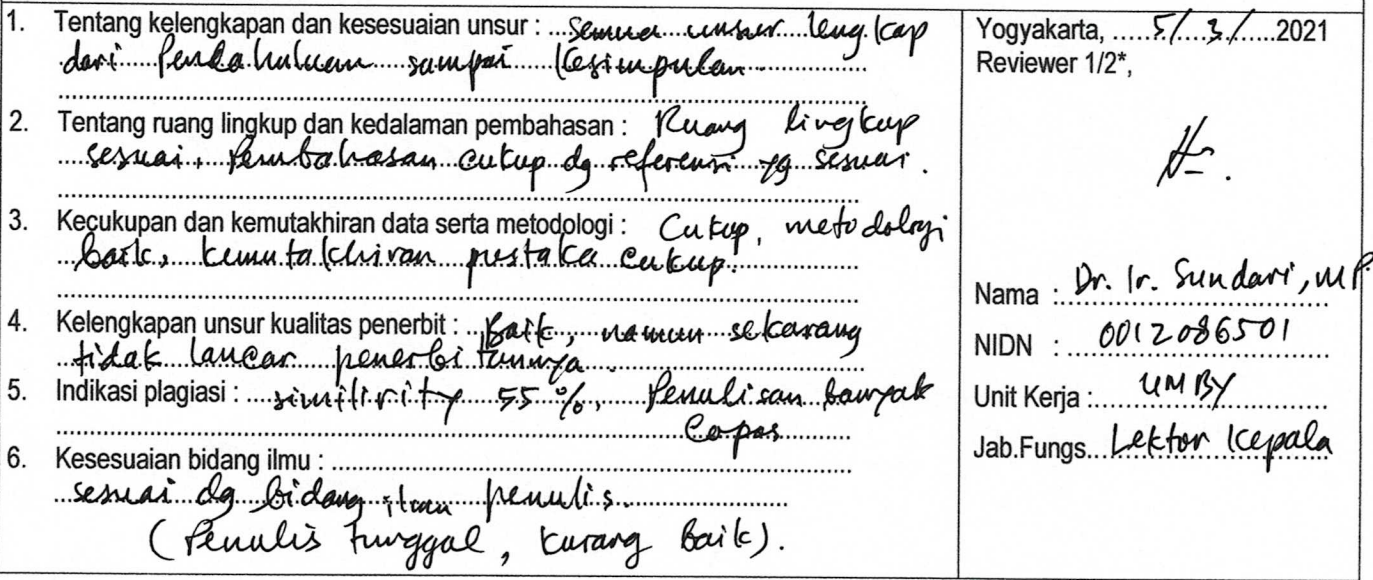 1. Tentang kelengkapan dan kesesuaian unsur : Semua unsur lengkap
dari Pendahuluan sampai Kesimpulan
2. Tentang ruang lingkup dan kedalaman pembahasan : Ruang lingkup
sesuai, Pembahasan cukup dg referensi yg sesuai.
3. Kecukupan dan kemutakhiran data serta metodologi : Cukup, metodologi
baik, kemutakhiran pustaka cukup.
4. Kelengkapan unsur kualitas penerbit : Baik, namun sekarang
tidak lancar penerbitannya
5. Indikasi plagiasi : similirity 55 %, Penulisan banyak
Copas
6. Kesesuaian bidang ilmu :
sesuai dg bidang ilmu penulis.
(Penulis tunggal, kurang Baik).
Yogyakarta, 5/3/2021
Reviewer 1/2*,
Nama : Dr. Ir. Sundari, MP.
NIDN : 0012086501
Unit Kerja : UMBY
Jab.Fungs. Lektor Kepala